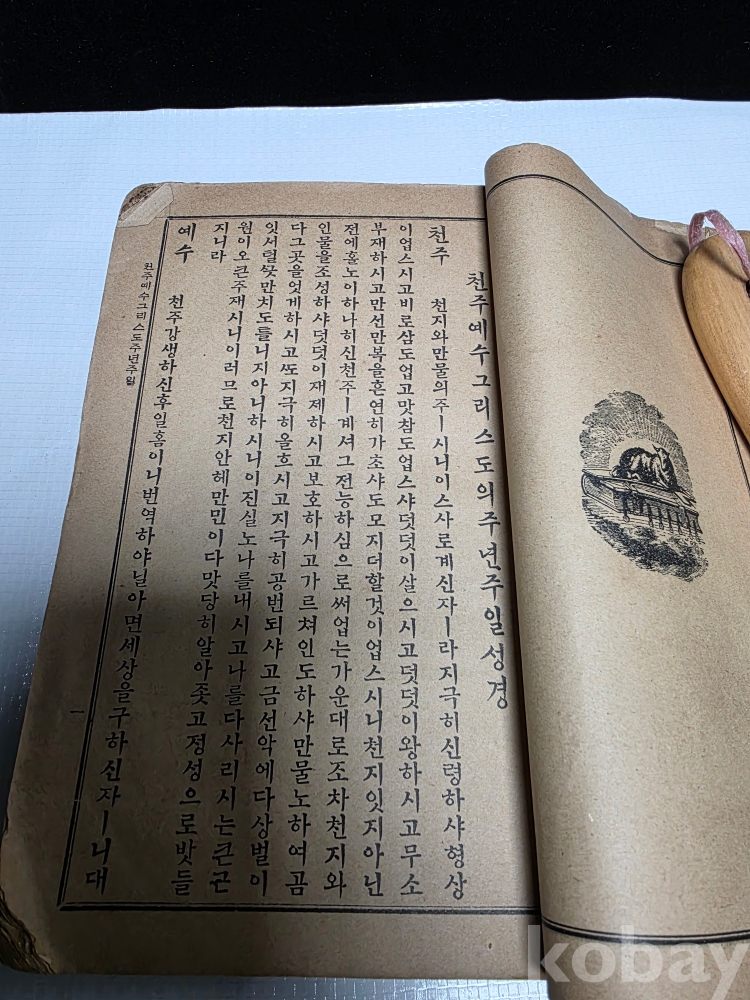 천주예수그리스도의주년주일성경
천주 천지와만물의주ㅣ시니이스사로계신자ㅣ라지극히신령하샤형상
이업스시고비로삼도업고맛참도업스샤덧덧이살으시고덧덧이왕하시고무소
부재하시고만선만복을흔연히가초샤도모지더할것이업스시니천지잇지아닌
전에홀노이하나히신천주ㅣ계셔그전능하심으로써업는가운대로조차천지와
인물을조성하샤덧덧이재제하시고보호하시고가르쳐인도하샤만물노하여곰
다그곳을엇게하시고ᄯᅩ지극히올흐시고지극히공번되샤고금선악에다상벌이
잇서럴ᄭᅳᆺ만치도틀니지아니하시니이진실노나를내시고나를다사리시는큰근
원이오큰주재시니이러므로천지안헤만민이다맛당히알아좃고정성으로밧들
지니라
예수 천주강생하신후일홈이니번역하야닐아면세상을구하신자ㅣ니대
천주예수그리스도주년주일
一
kobay